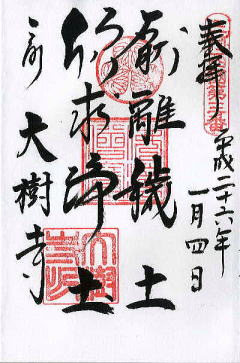 奉拝
平成二十六年
一月四日
厭離穢土
欣求浄土
大樹寺